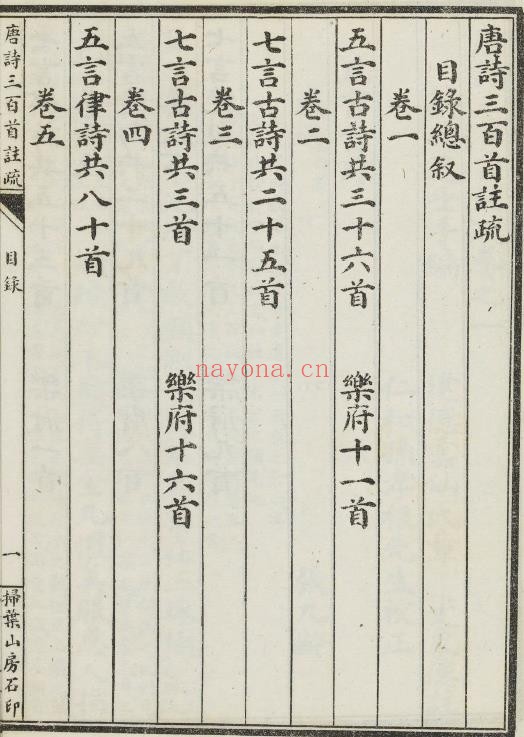 唐詩三百首註疏
目錄總叙
卷一
五言古詩共三十六首 樂府十一首
卷二
七言古詩共二十五首
卷三
七言古詩共三首 樂府十六首
卷四
五言律詩共八十首
卷五
唐詩三百首註疏 目錄 一 掃葉山房石印
nayona.cn